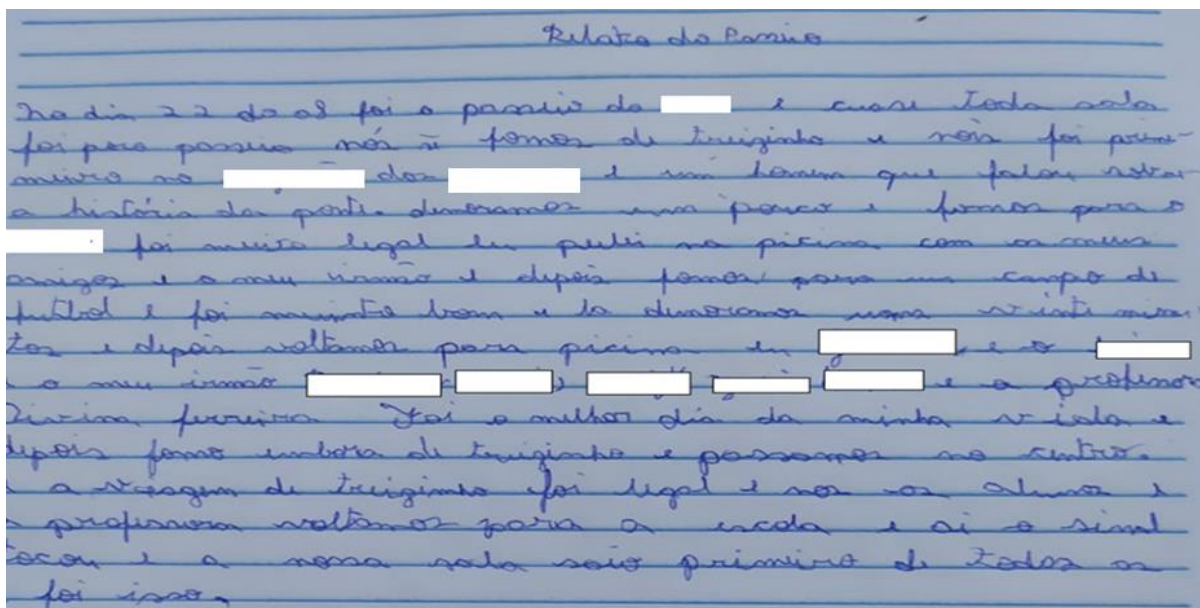 Relato do Passeio
No dia 22 do 08 foi o passeio do e cuase toda sala
foi para passeio nós fomos de treizinho e nois foi prim-
meiro no dos e um homem que falou sobre
a história da ponte. demoramos um pouco e formos para o
foi muito legal eu pulei na picina com os meus
amigos e o meu irmão e depois fomos para um campo de
futibol e foi muinto bom e la demoramos uns vinti minu
tos e depois voltamos para picina eu e o
o meu irmão e a professora
Divina ferreira. Foi o melhor dia da minha vida e
depois fomo embora de treizinho e passamos no centro.
e a viagem de treizinho foi legal e nos os alunos e
a professora voltamos para a escola e ai o sinal
tocou e a nossa sala saio primeiro de todos os
foi isso.